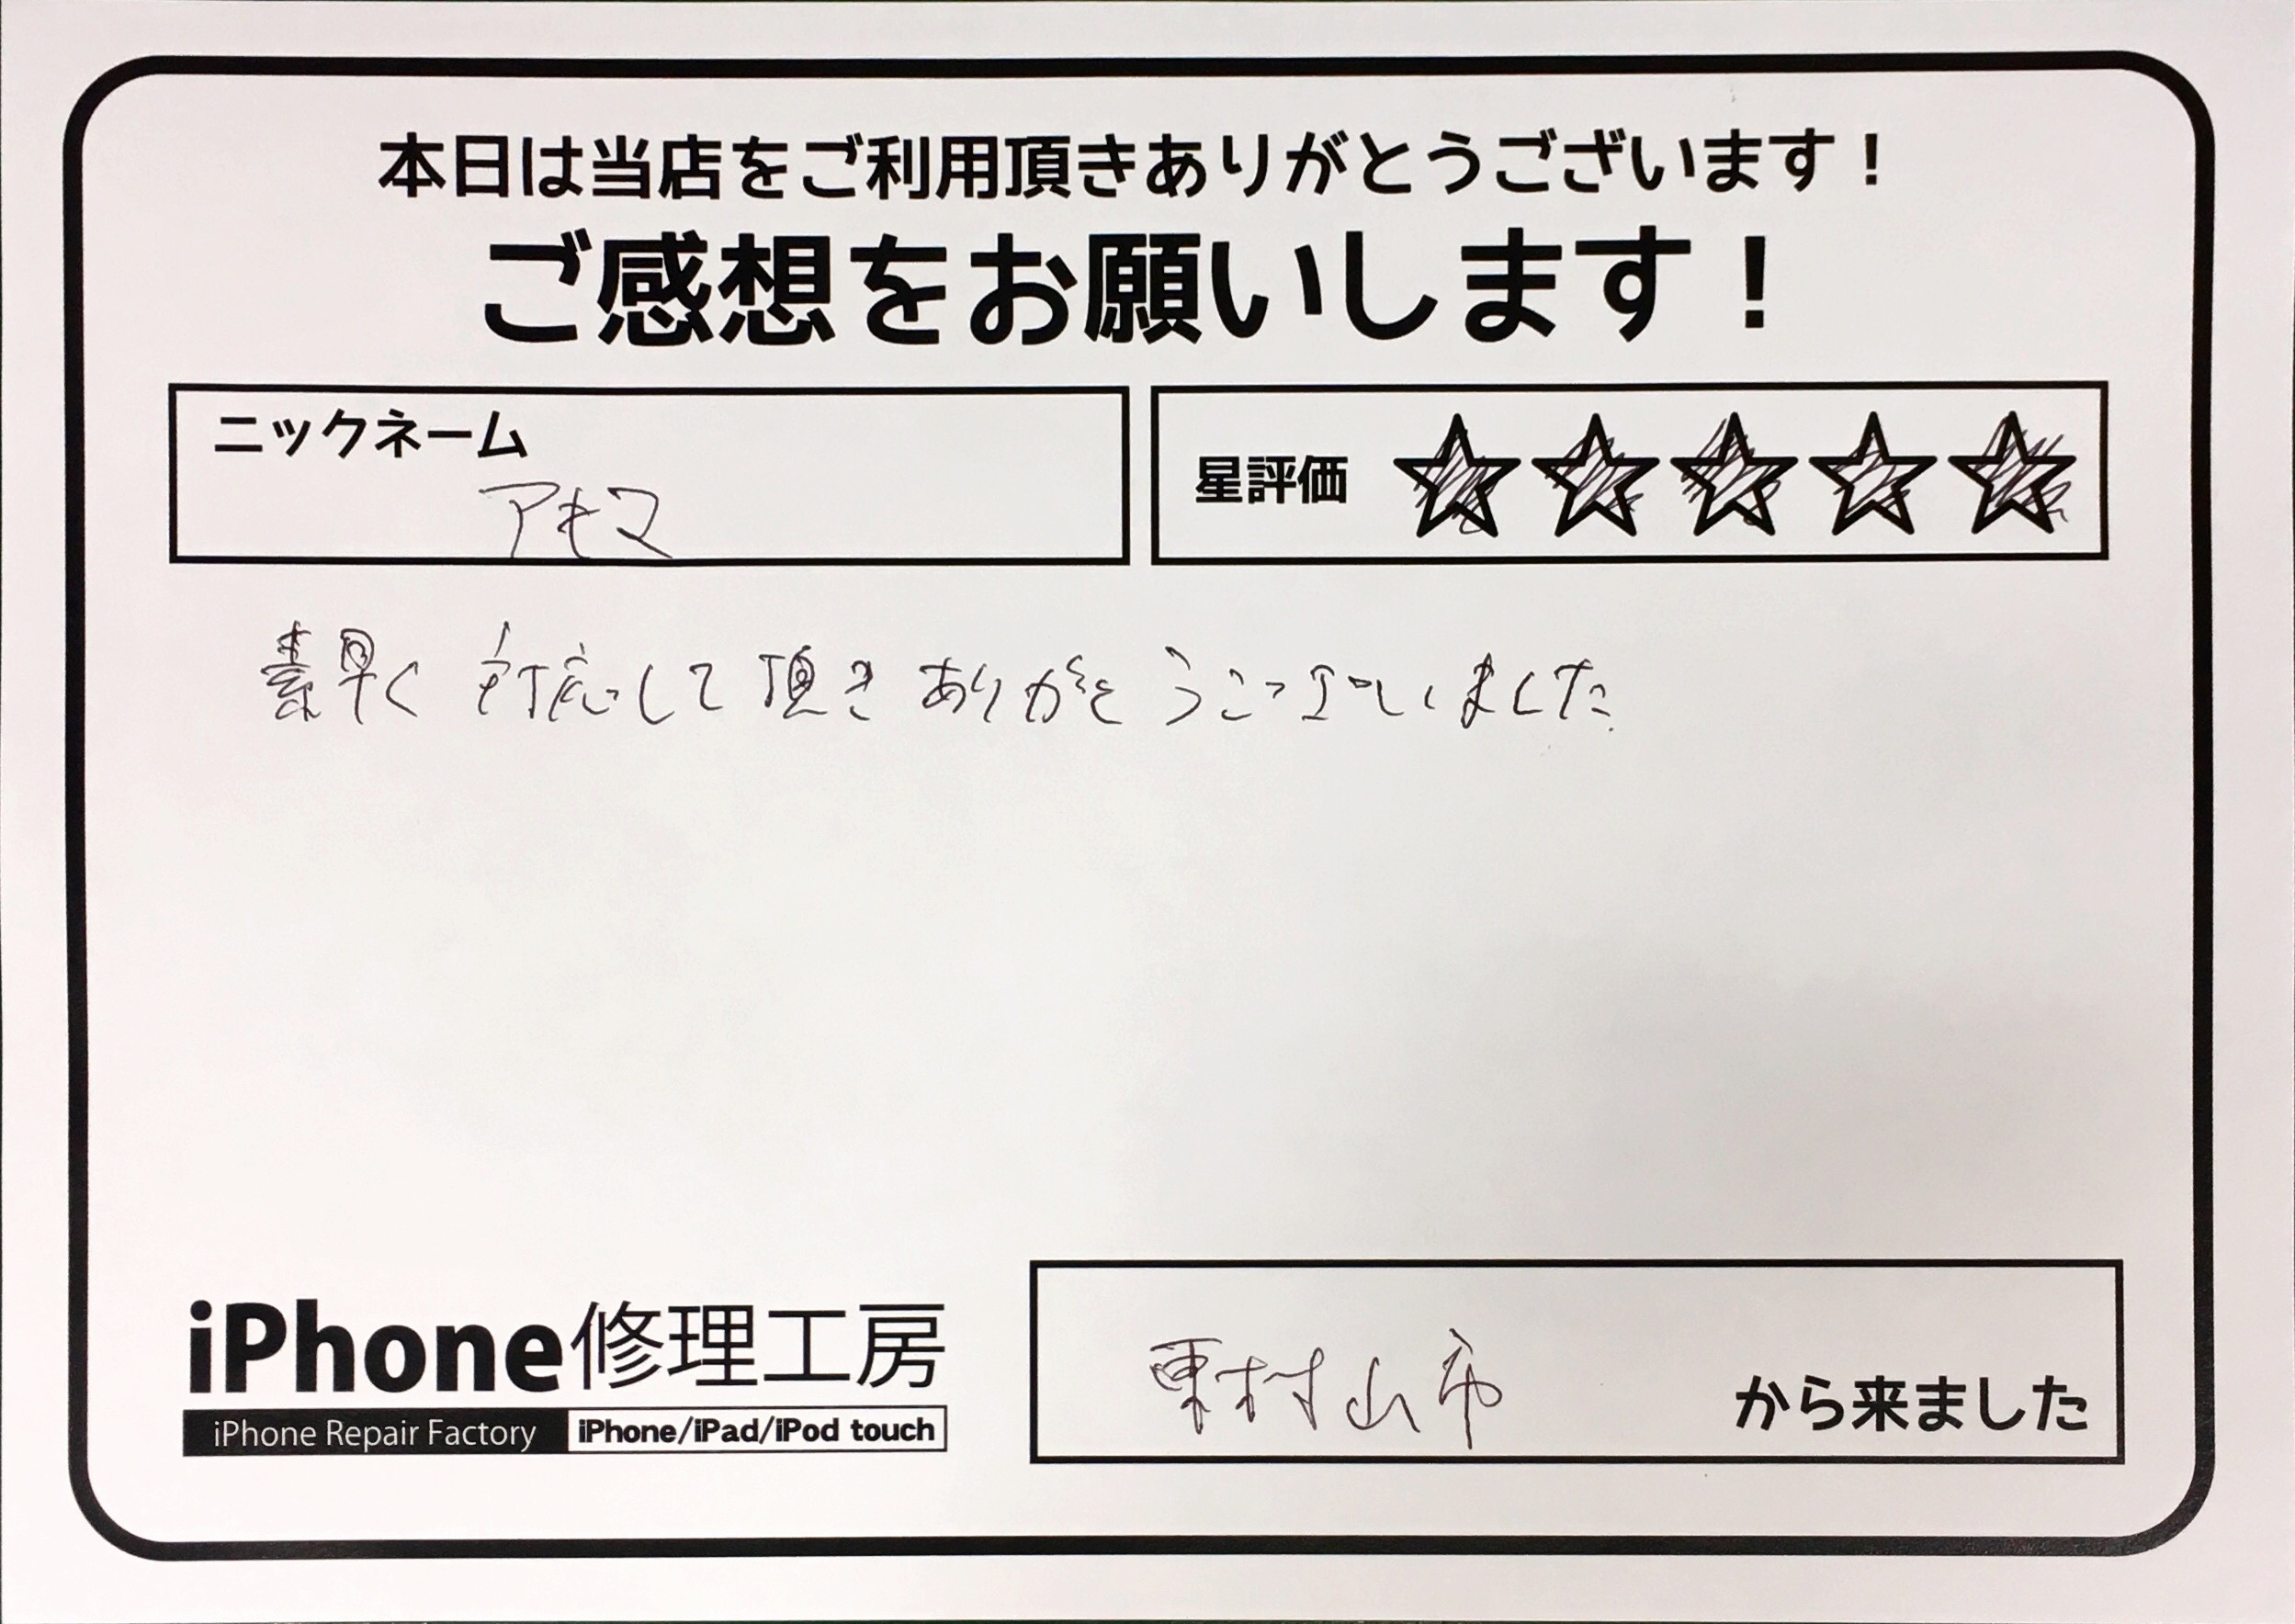 本日は当店をご利用頂きありがとうございます！
ご感想をお願いします！
ニックネーム
アキマ
星評価 ☆☆☆☆☆
素早く対応して頂きありがとうございました
iPhone修理工房
iPhone Repair Factory iPhone/iPad/iPod touch
東村山市 から来ました